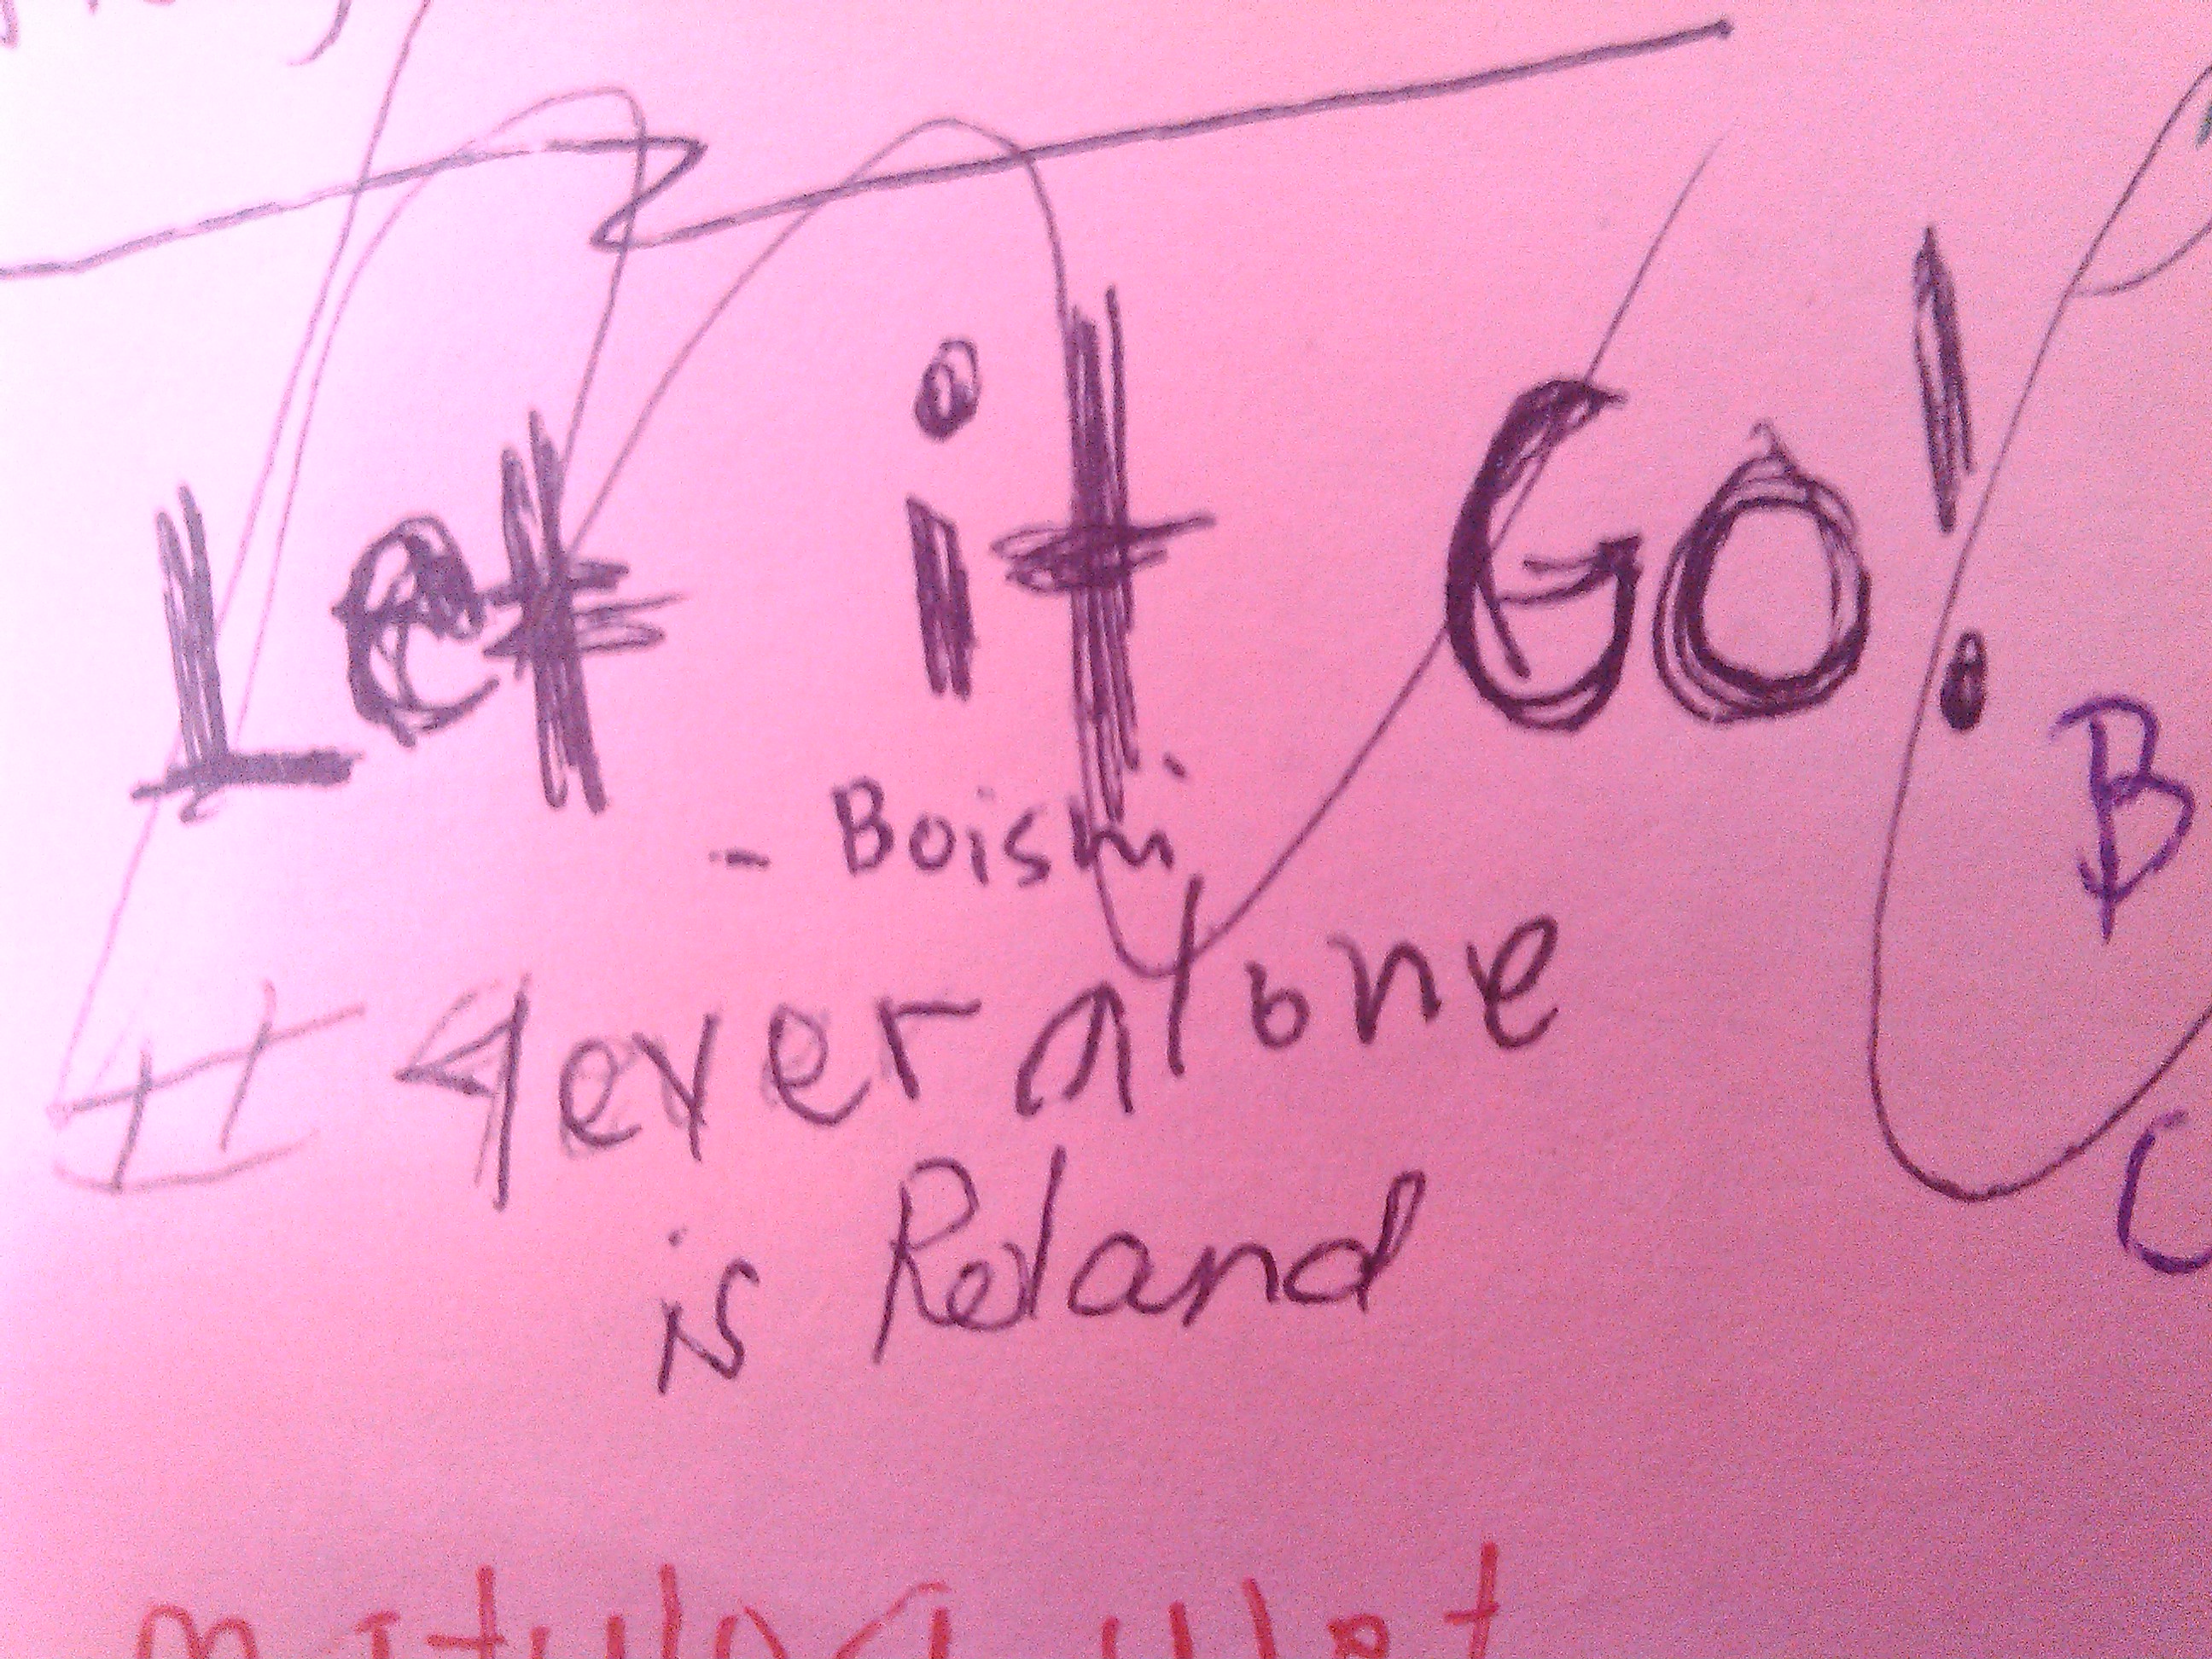 Let it Go!
- Boishi
# 4ever alone
is Roland
B